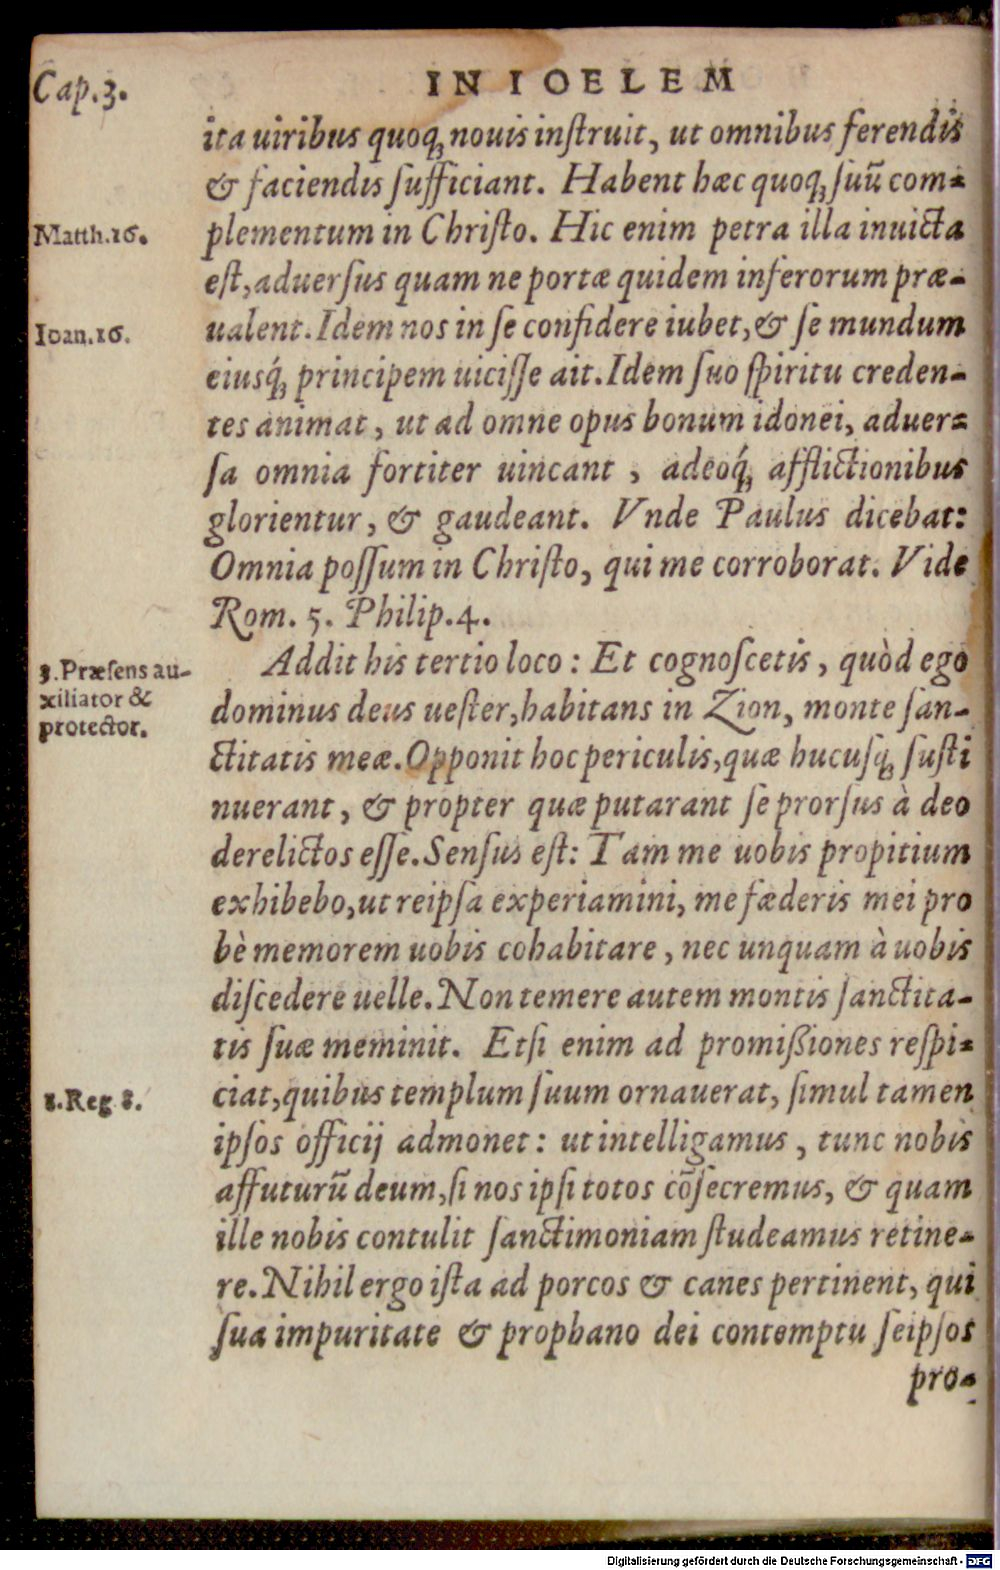 Cap.3.
IN IOELEM
ita uiribus quoq; nouis inſtruit, ut omnibus ferendis
& faciendis ſufficiant. Habent hæc quoq; ſuũ com-
Matth.16.
plementum in Chriſto. Hic enim petra illa inuicta
eſt, aduerſus quam ne portæ quidem inferorum præ-
Ioan.16.
ualent. Idem nos in ſe confidere iubet, & ſe mundum
eiusq́; principem uiciſſe ait. Idem ſuo ſpiritu creden-
tes animat, ut ad omne opus bonum idonei, aduer-
ſa omnia fortiter uincant, adeoq́; afflictionibus
glorientur, & gaudeant. Vnde Paulus dicebat:
Omnia poſſum in Chriſto, qui me corroborat. Vide
Rom. 5. Philip.4.
3.Præſens au-
xiliator &
protector.
Addit his tertio loco: Et cognoſcetis, quòd ego
dominus deus ueſter, habitans in Zion, monte ſan-
ctitatis meæ. Opponit hoc periculis, quæ hucuſq; ſuſti
nuerant, & propter quæ putarant ſe prorſus à deo
derelictos eſſe. Senſus eſt: Tam me uobis propitium
exhibebo, ut reipſa experiamini, me fæderis mei pro
bè memorem uobis cohabitare, nec unquam à uobis
diſcedere uelle. Non temere autem montis ſanctita-
tis ſuæ meminit. Etſi enim ad promißiones reſpi-
1.Reg 8.
ciat, quibus templum ſuum ornauerat, ſimul tamen
ipſos officij admonet: ut intelligamus, tunc nobis
affuturũ deum, ſi nos ipſi totos cõſecremus, & quam
ille nobis contulit ſanctimoniam ſtudeamus retine-
re. Nihil ergo iſta ad porcos & canes pertinent, qui
ſua impuritate & prophano dei contemptu ſeipſos
pro-
Digitalisierung gefördert durch die Deutsche Forschungsgemeinschaft - DFG